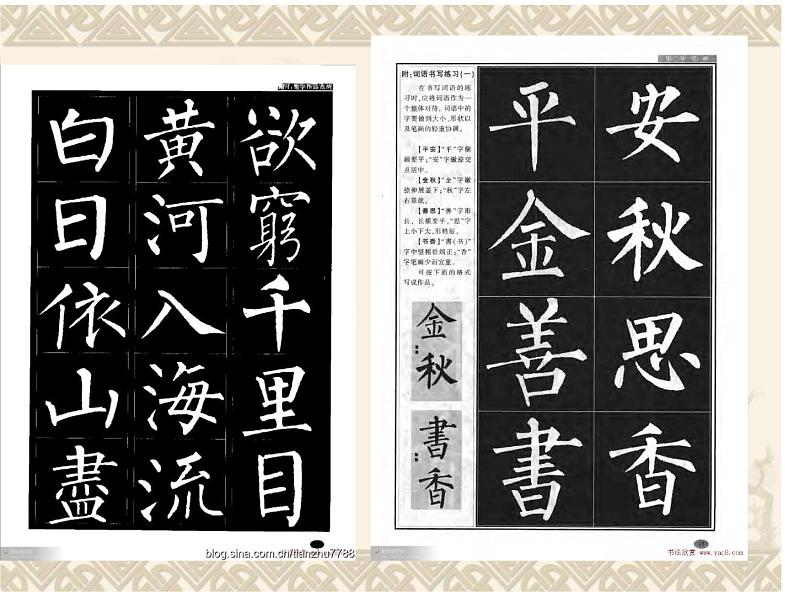 白日依山盡
黄河入海流
欲窮千里目
blog.sina.com.cn/tianzhu7788
附:词语书写练习(一)
在书写词语的练
习时,应将词语作为一
个整体对待,词语中的
字要做到大小、形状以
及笔画的轻重协调。
【平安】“平”字横
画要平;“安”字撇捺交
点居中。
【金秋】“金”字撇
捺伸展盖下;“秋”字左
右靠拢。
【善思】“善”字形
长,长横要平,“思”字
上小下大,形稍短。
【书香】“書(书)”
字中竖粗壮端正;“香”
字笔画少而宜重。
可按下面的格式
写成作品。
金秋
書香
平安
金秋
善思
書香
书法欣赏 www.yac8.com